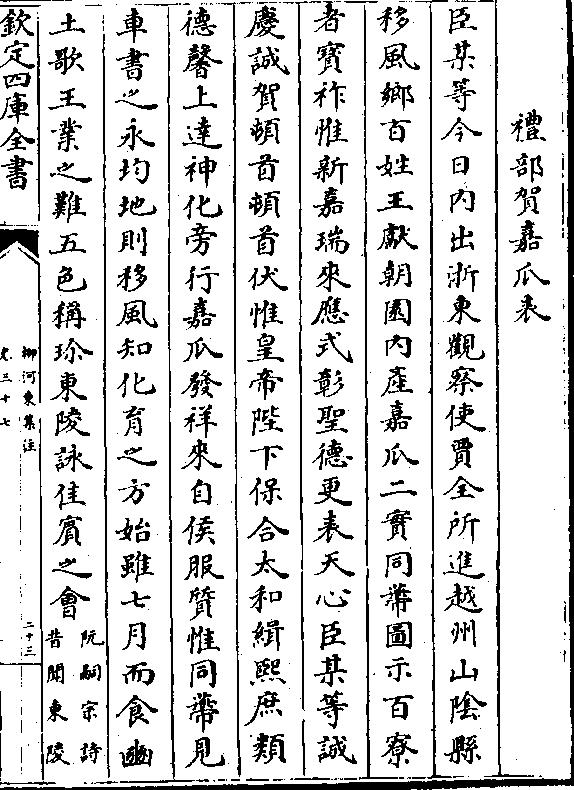 禮部賀嘉瓜表
臣某等今日內出浙東觀察使賈全所進越州山陰縣
移風鄉百姓王獻朝園內產嘉瓜二實同蔕圖示百寮
者寳祚惟新嘉瑞來應式彰聖德更表天心臣某等誠
慶誠賀頓首頓首伏惟皇帝陛下保合太和緝熙庶類
德馨上達神化旁行嘉瓜發祥來自侯服質惟同蔕見
車書之永均地則移風知化育之方始雖七月而食豳
土歌王業之難五色稱珍東陵詠佳賓之會阮嗣宗詩
昔聞東陵
欽定四庫全書
柳河東集注
卷三十七
二十三